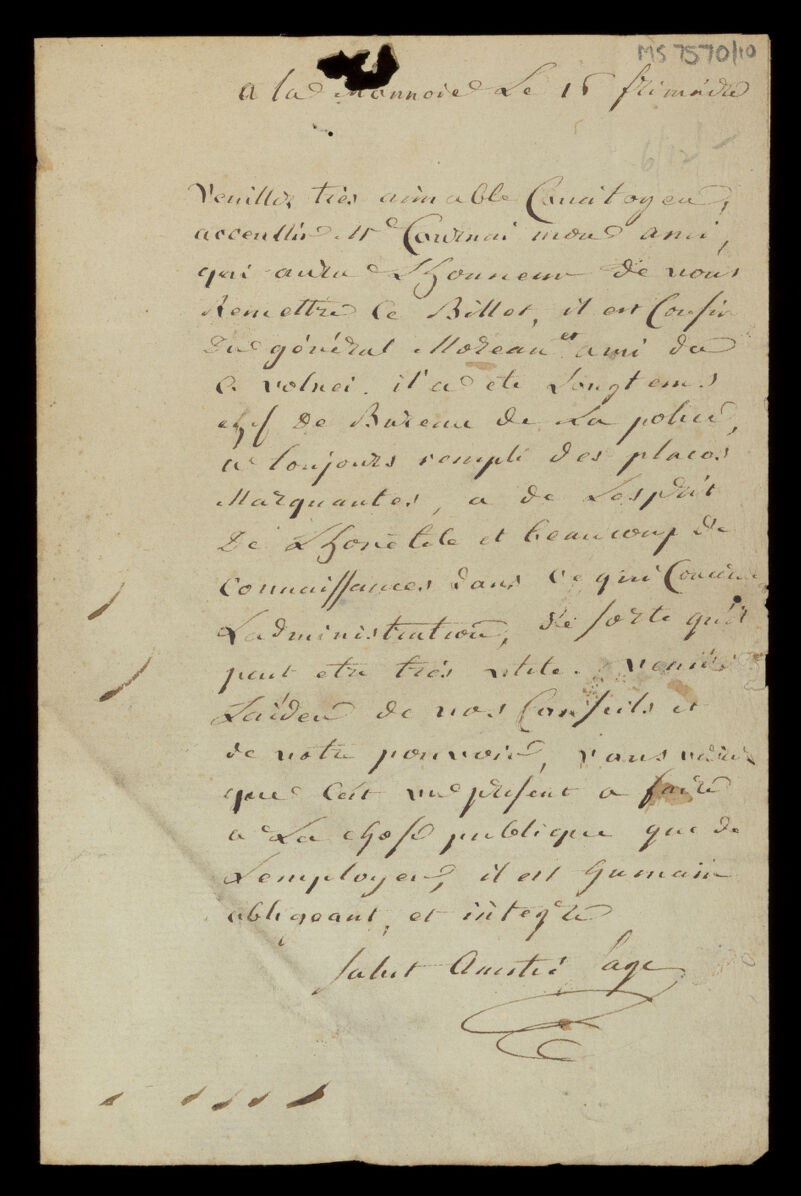 MS 7570/10
a la Monnoie Le 16 frimaire
6/12/-
Veuillés très aimable Concitoyen,
acceullir Mr Cournai mon ami,
qui aura Lhonneur de vous
Remettre Ce Billet, il est Cousin
Du général Moreau et ami du
C. volnei. il a eté Longtems
chef de Bureau de La police,
a toujours rempli des places
Marquantes, a de Lesprit
De Lhonetete et beaucoup de
connaissances dans ce qui Concerne
Ladministration, de sorte qu'il
peut etre très utile. veuillés
Laider de vos Conseils et
de votre pouvoir, vous verrés
que Cest un present a faire
a La chose publique que de
Lemployer, il est humain
obligeant, et intègre
salut Amitié Sage